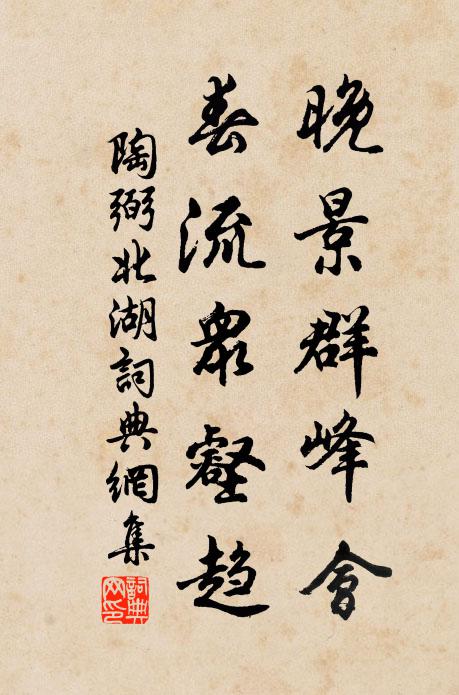 晚景群峰會
春流衆壑趨
陶弼北湖詞典網集
詞典網印